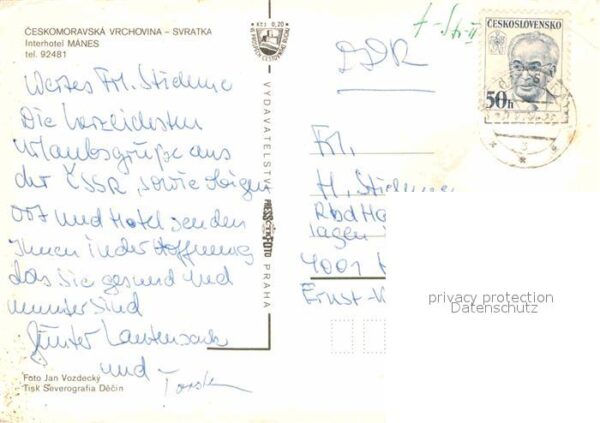 ČESKOMORAVSKÁ VRCHOVINA – SVRATKA
Interhotel MÁNES
tel. 92481
Wertes Frl.
Die herzlichsten
Urlaubsgrüße aus
der ČSSR, sowie obigen
Ort und Hotel senden
Ihnen in der Hoffnung
das Sie gesund und
munter sind
Günter Lautensack
und Torsten
Foto Jan Vozdecký
Tisk Severografia Děčín
Kčs 0,20
VYDAVATELSTVÍ PRESSFOTO PRAHA
DDR
ČESKOSLOVENSKO
50h
Frl.
H.
Rbd Ha
lagen
4001
Ernst-
privacy protection
Datenschutz